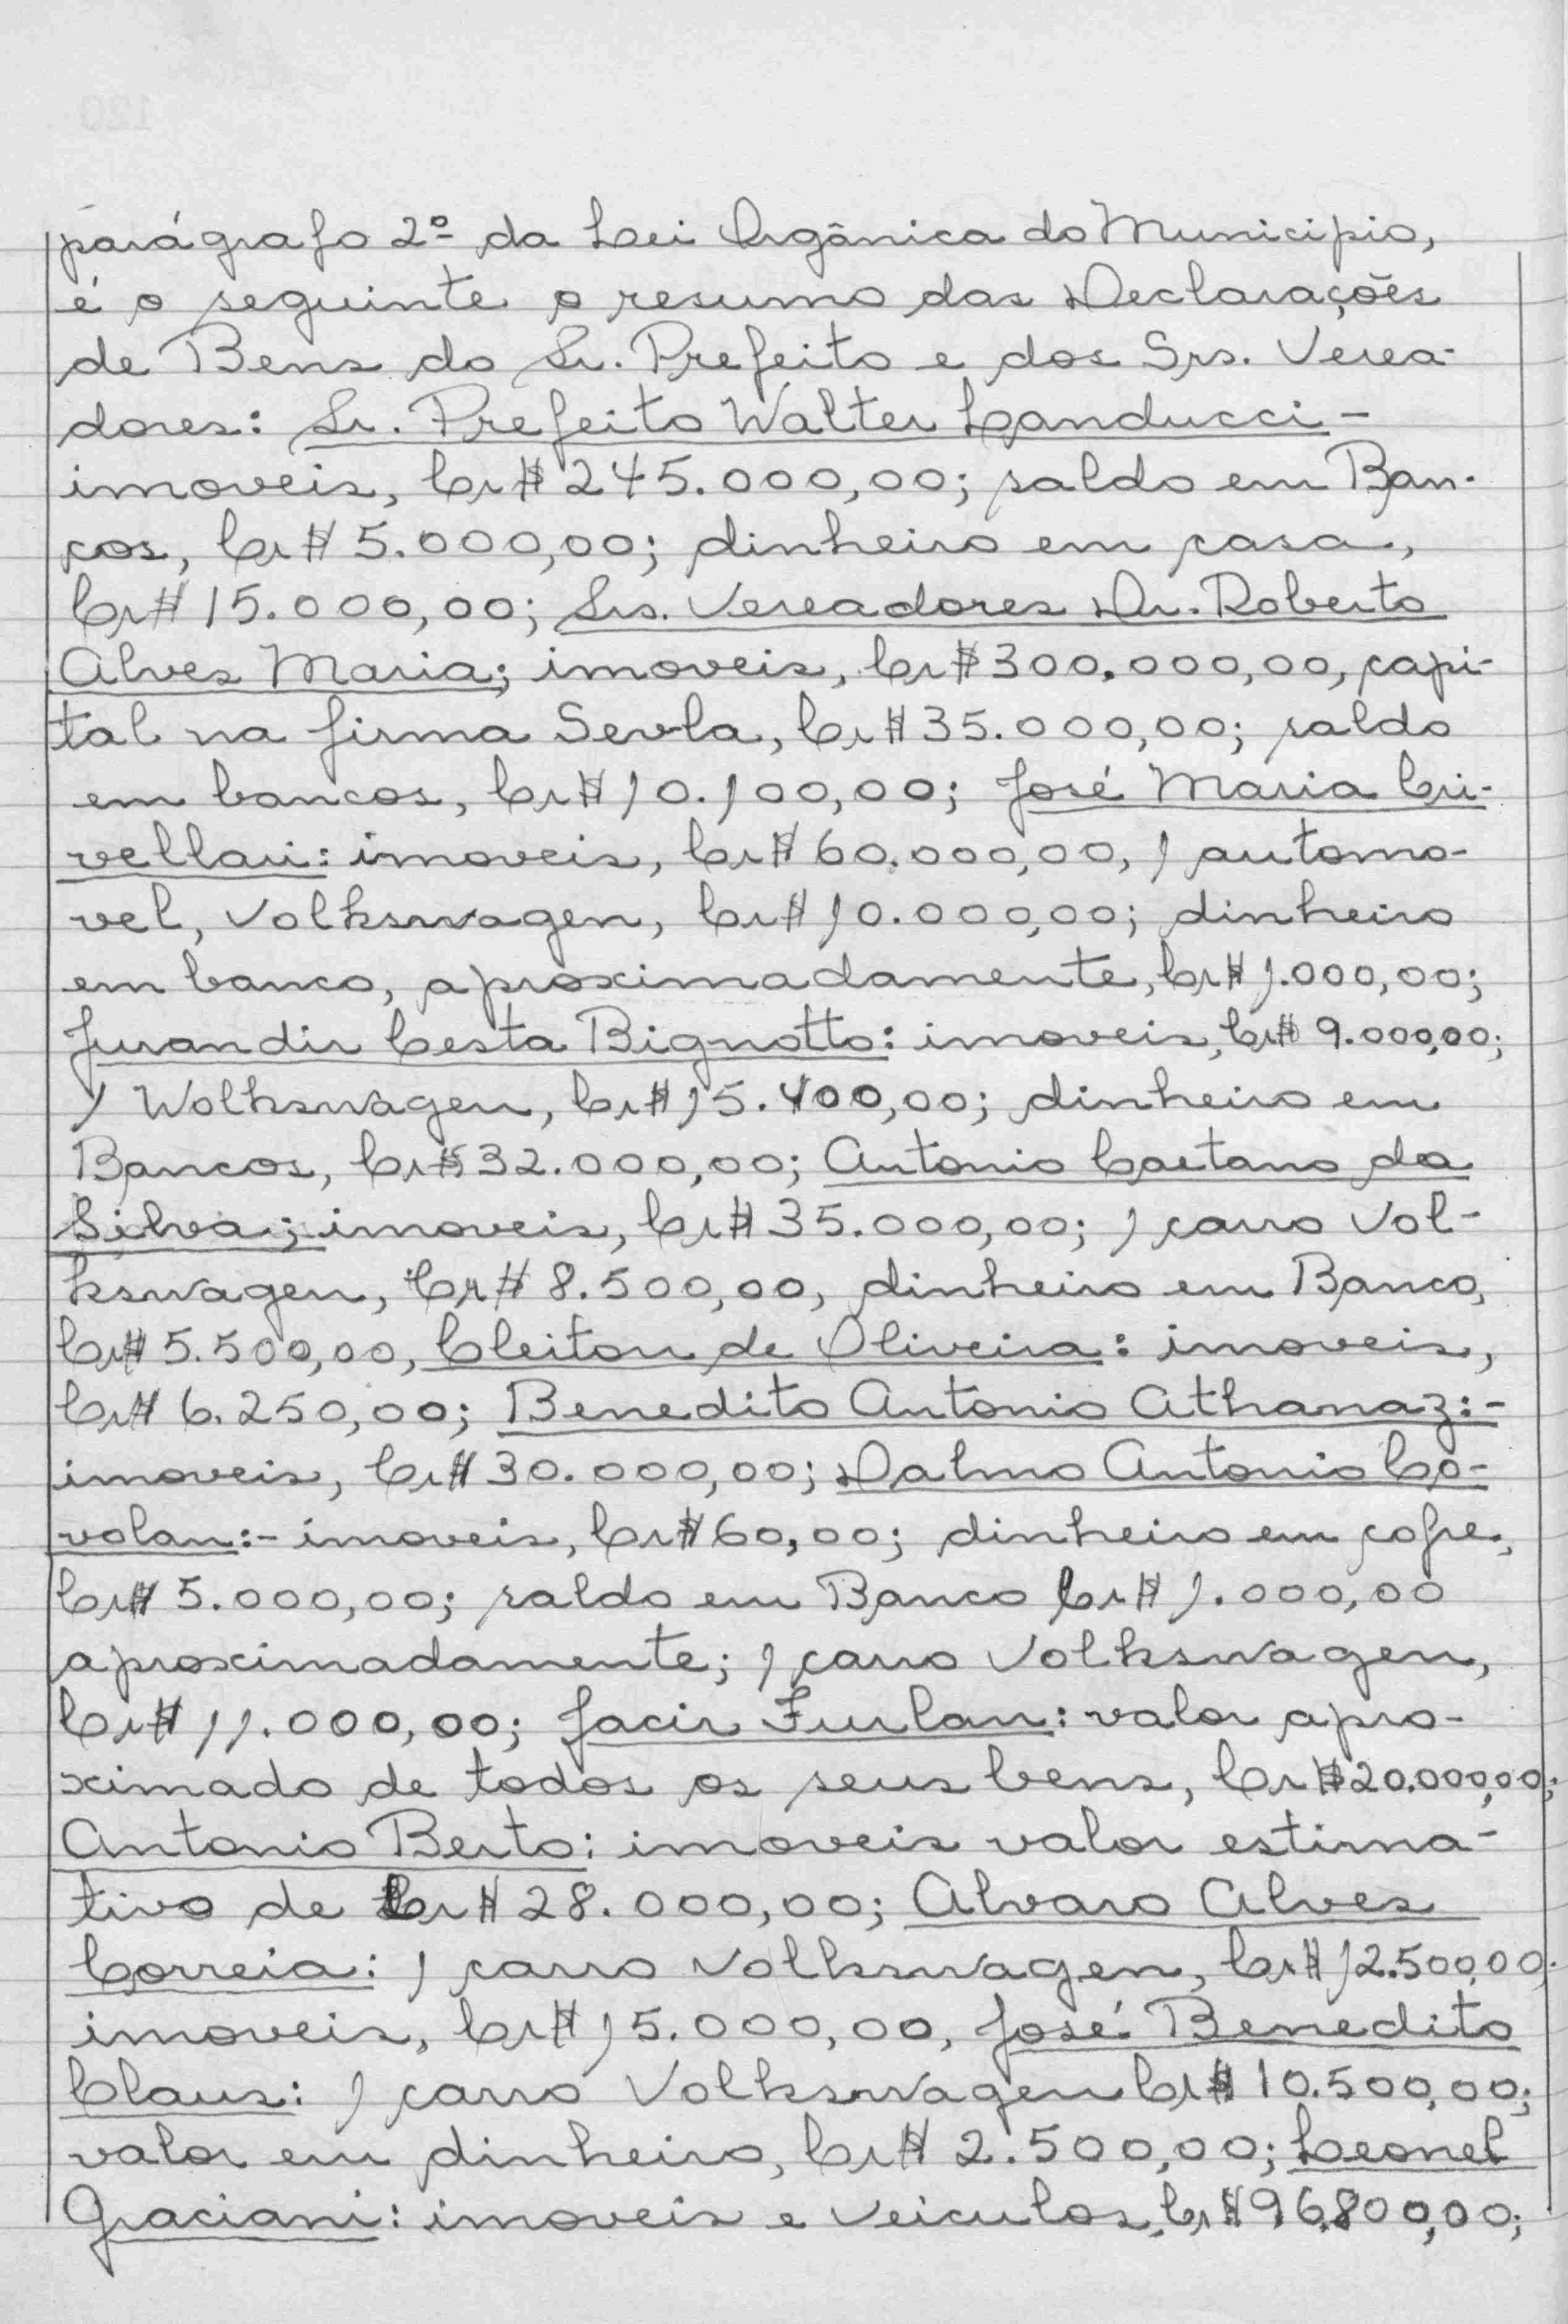 parágrafo 2º da Lei Orgânica do Municipio,
é o seguinte o resumo das Declarações
de Bens do Sr. Prefeito e dos Srs. Verea-
dores: Sr. Prefeito Walter Landucci -
imoveis, Cr$ 245.000,00; saldo em Ban-
cos, Cr$ 5.000,00; dinheiro em casa,
Cr$ 15.000,00; Srs. Vereadores Dr. Roberto
Alves Maria; imoveis, Cr$ 300.000,00, capi-
tal na firma Sevla, Cr$ 35.000,00; saldo
em bancos, Cr$ 10.100,00; José Maria Cri-
vellari: imoveis, Cr$ 60.000,00, 1 automo-
vel, Volkswagen, Cr$ 10.000,00; dinheiro
em banco, aproximadamente, Cr$ 1.000,00;
Jurandir Cesta Bignotto: imoveis, Cr$ 9.000,00;
1 Wolkswagen, Cr$ 15.400,00; dinheiro em
Bancos, Cr$ 32.000,00; Antonio Caetano da
Silva; imoveis, Cr$ 35.000,00; 1 carro Vol-
kswagen, Cr$ 8.500,00, dinheiro em Banco,
Cr$ 5.500,00, Cleiton de Oliveira: imoveis,
Cr$ 6.250,00; Benedito Antonio Athanaz:-
imoveis, Cr$ 30.000,00; Dalmo Antonio Co-
volan:- imoveis, Cr$ 60,00; dinheiro em cofre,
Cr$ 5.000,00; saldo em Banco Cr$ 1.000,00
aproximadamente; 1 carro Volkswagen,
Cr$ 11.000,00; Jacir Furlan: valor apro-
ximado de todos os seus bens, Cr$ 20.000,00;
Antonio Berto: imoveis valor estima-
tivo de Cr$ 28.000,00; Alvaro Alves
Correia: 1 carro Volkswagen, Cr$ 12.500,00;
imoveis, Cr$ 15.000,00, José Benedito
Claus: 1 carro Volkswagen Cr$ 10.500,00;
valor em dinheiro, Cr$ 2.500,00; Leonel
Graciani: imoveis e veiculos, Cr$ 96.800,00;